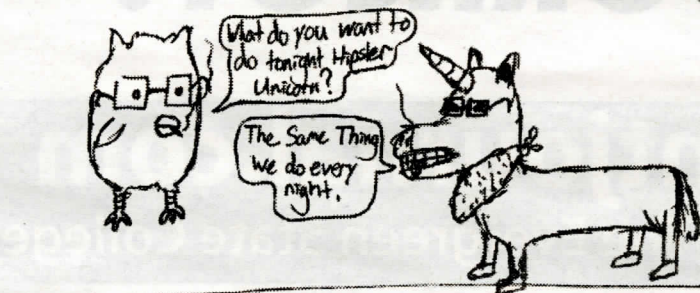 What do you want to
do tonight Hipster
Unicorn?
The Same Thing
we do every
night.